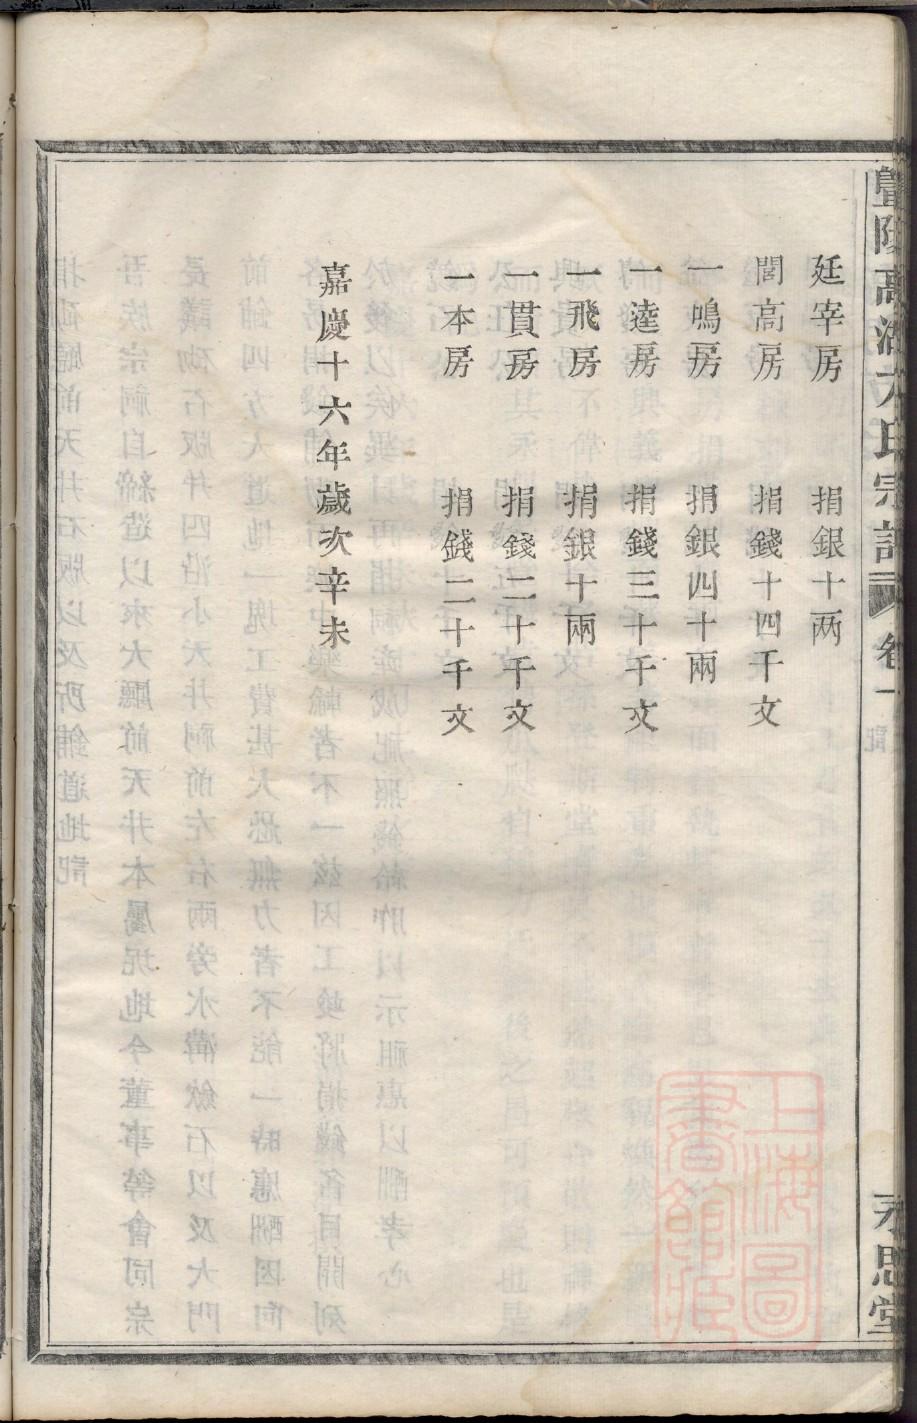 暨陽高湖六氏宗譜 卷一 記 永思堂
廷宰房 捐銀十两
閭高房 捐錢十四千文
一鳴房 捐銀四十兩
一逵房 捐錢三十千文
一飛房 捐銀十兩
一貫房 捐錢二十千文
一本房 捐錢二十千文
嘉慶十六年歲次辛未
上海圖書館藏